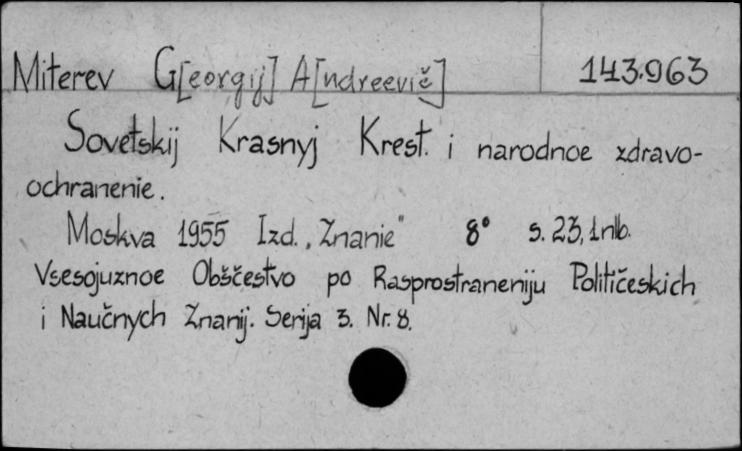 Miterev G[eorgij] A[ndreevič] 143.963
Sovetskij Krasnyj Krest. i narodnoe zdravo-
ochranenie.
Moskva 1955 Izd. „Znanie" 8° s. 23, 1 nlb.
Vsesojuznoe Obščestvo po Rasprostraneniju Političeskich
i Naučnych Znanij. Serija 3. Nr. 8.